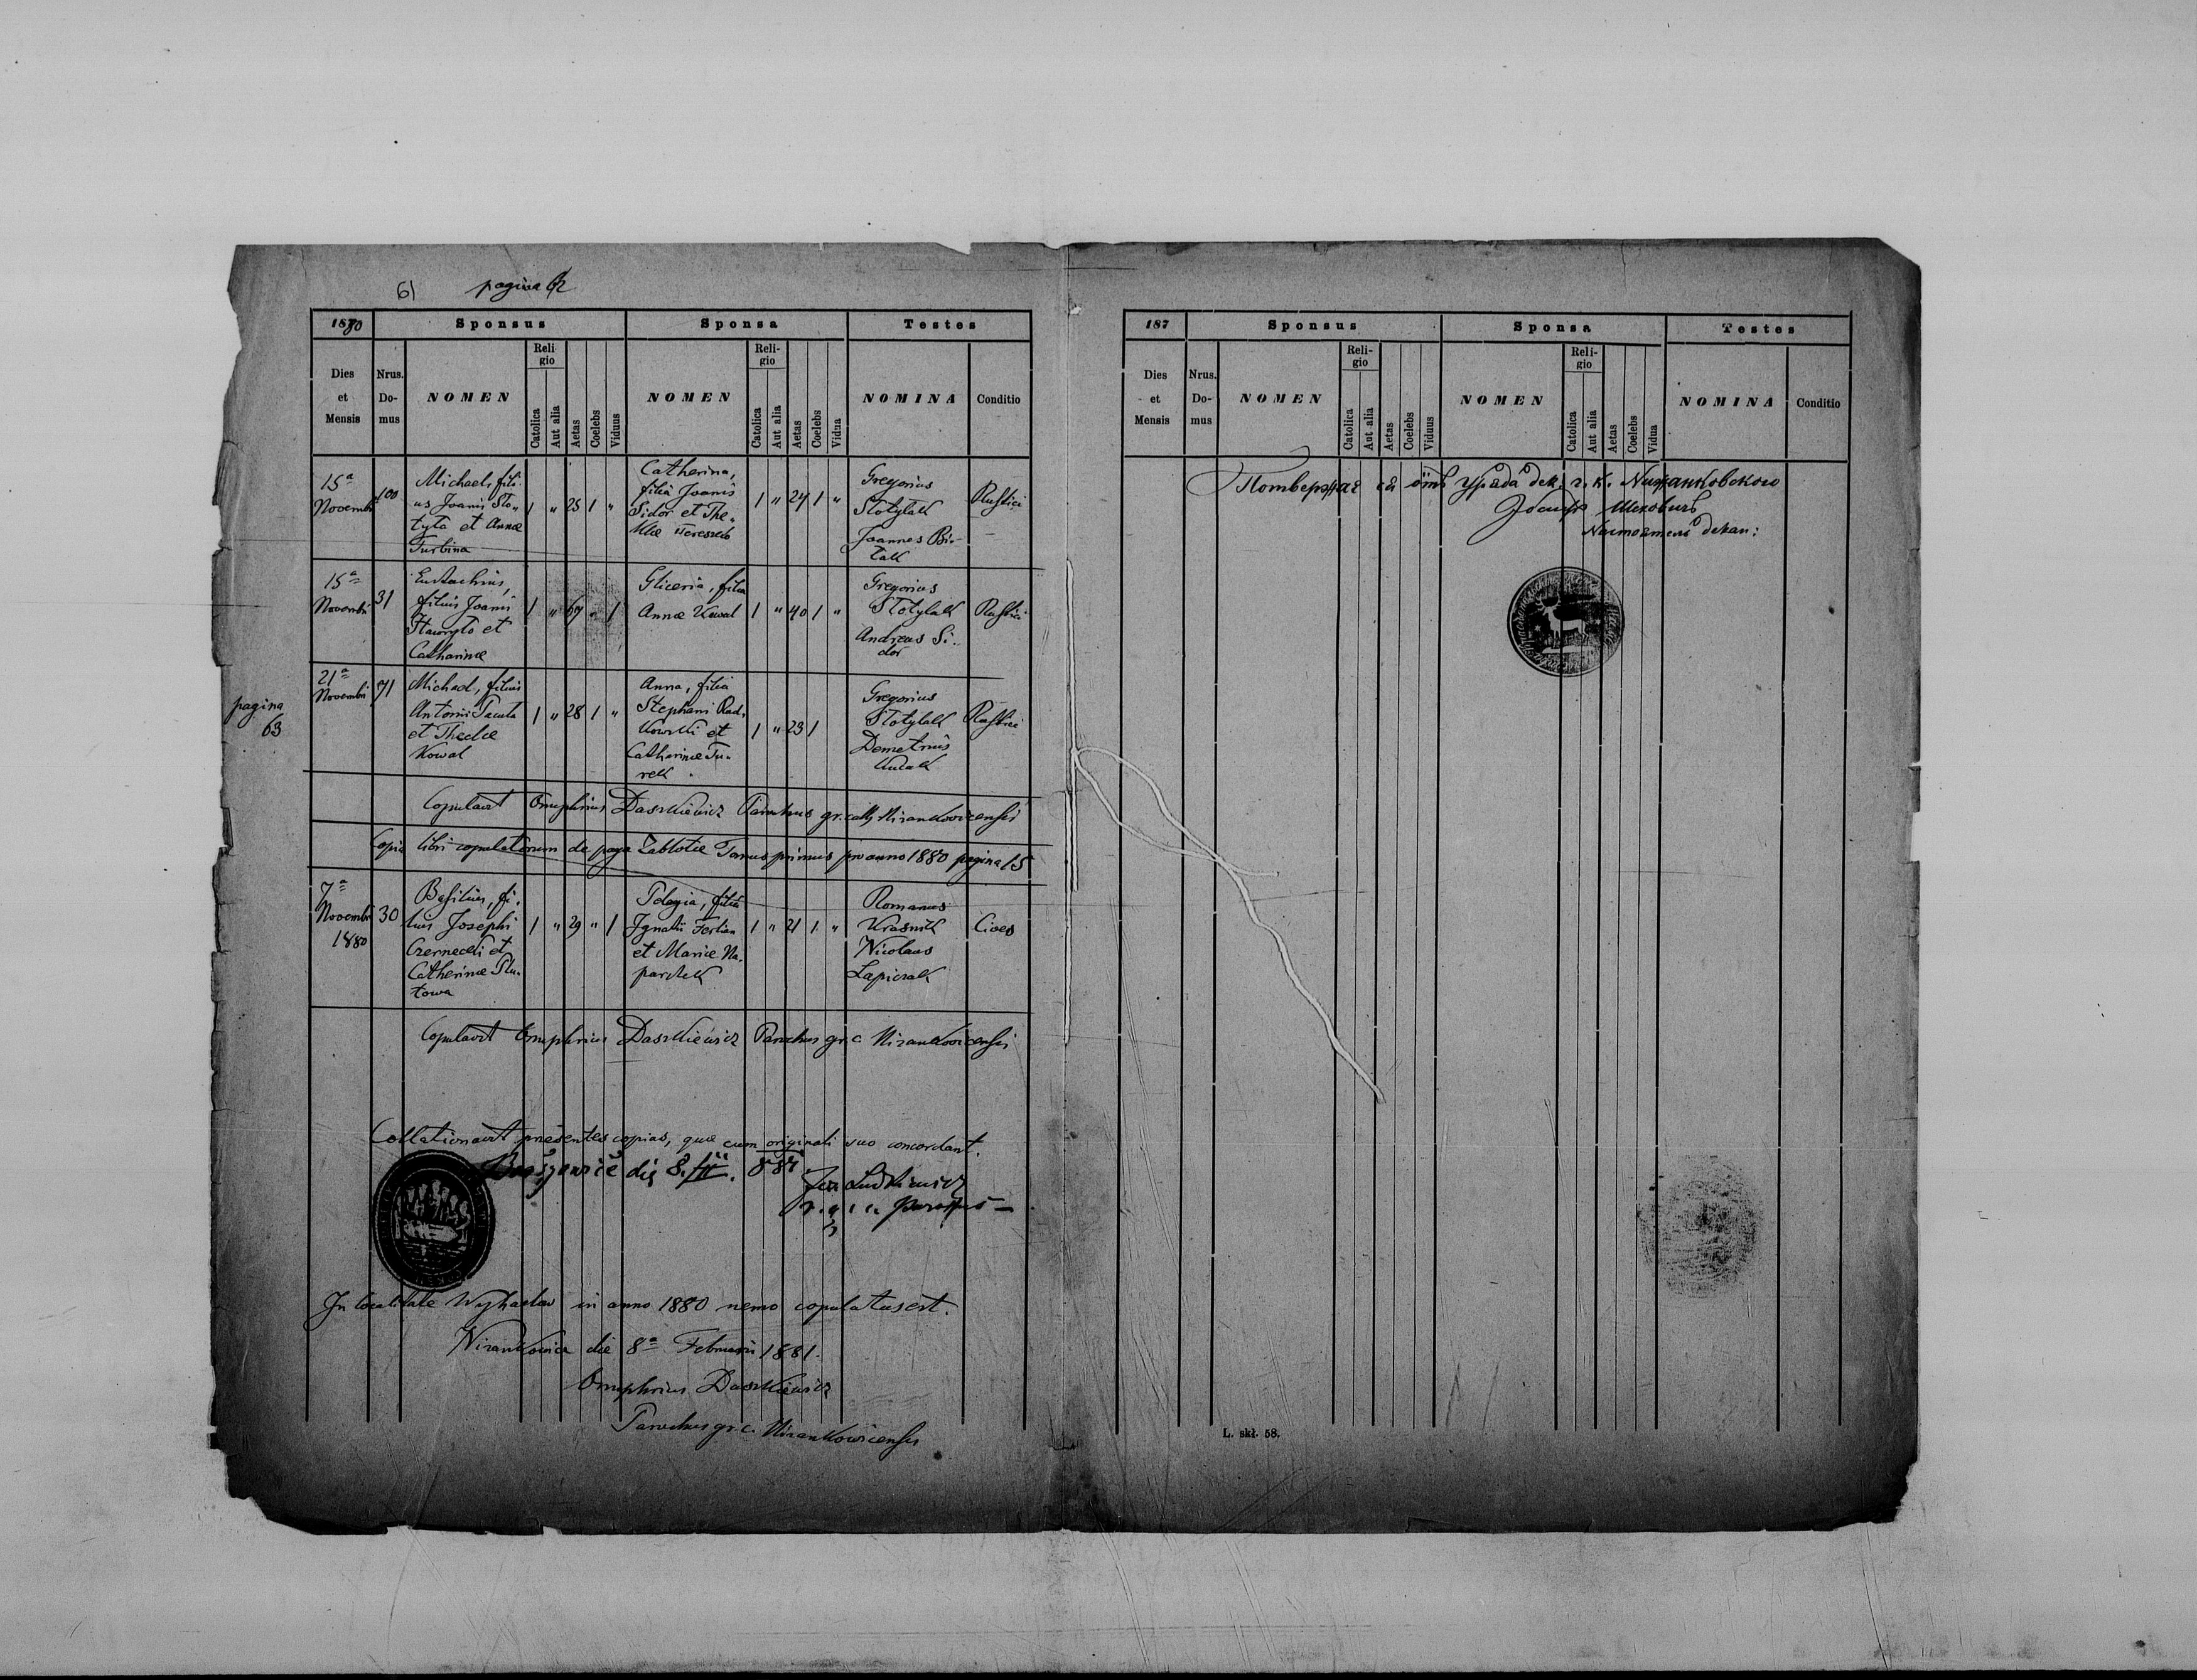 61 pagina 62
1880 Sponsus Sponsa Testes
Dies et Mensis
Nrus. Domus
NOMEN
Religio
Catolica
Aut alia
Aetas
Coelebs
Viduus
NOMEN
Religio
Catolica
Aut alia
Aetas
Coelebs
Vidua
NOMINA
Conditio
15ª
Novembr
100
Michael, fili-
us Joanis Sto-
tyla et Annae
Turbina
1 " 25 1 "
Catherina,
filia Joanis
Sidor et The-
klae Tereszek
1 " 24 1 "
Gregorius
Stotylak
Joannes Bir-
tak
Rustici
15ª
Novembr
31
Eustachius,
filius Joanis
Hawryło et
Catharinae
1 " 67 " 1
Gliceria, filia
Annae Kowal
1 " 40 1 "
Gregorius
Stotylak
Andreas Si-
dor
Rustici
pagina
63
21ª
Novembr
71
Michael, filius
Antonii Pacuła
et Theclae
Kowal
1 " 28 1 "
Anna, filia
Stephani Rad-
kowski et
Catharinae Tu-
rek
1 " 23 1
Gregorius
Stotylak
Demetrius
Kulak
Rustici
Copulavit Onuphrius Daszkiewicz Parochus gr. cath Nizankovicensis
Copia libri copulatorum de pago Zablotce Tomus primus pro anno 1880 pagina 15
7ª
Novembr
1880
30
Basilius, fi-
lius Josephi
Czernecki et
Catherinae
towa
1 " 29 " 1
Pelagia, filia
Ignatii
et Mariae
1 " 21 1 "
Romanus
Krasnik
Nicolaus
Lapiczak
Cives
Copulavit Onuphrius Daszkiewicz Parochus gr. c. Nizankovicensis
Collationavit presentes copias, quae cum originali suo concordant.
die 8.
In localitate Wyhadow in anno 1880 nemo copulatus est.
Nizankowice die 8ª Februarii 1881.
Onuphrius Daszkiewicz
Parochus gr. c. Nizankovicensis
187 Sponsus Sponsa Testes
Dies et Mensis
Nrus. Domus
NOMEN
Religio
Catolica
Aut alia
Aetas
Coelebs
Viduus
NOMEN
Religio
Catolica
Aut alia
Aetas
Coelebs
Vidua
NOMINA
Conditio
Потверждає ся отъ уряда дек. г. к. Нижанковского
Іосифъ
декан:
L. skł. 58.